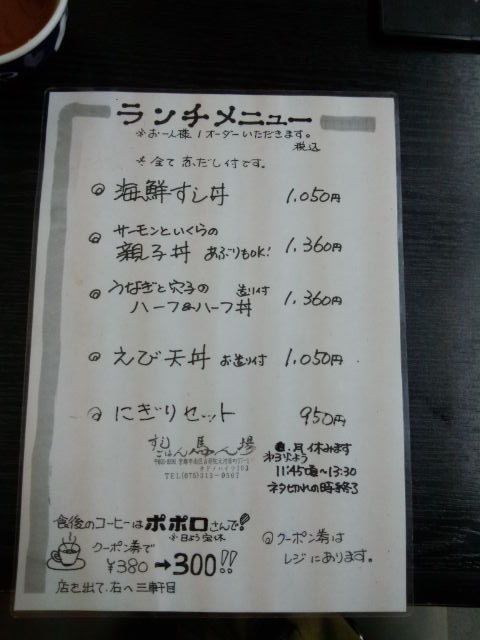 ランチメニュー
※お一人様1オーダーいただきます。
税込
※全て赤だし付です。
海鮮すし丼 1.050円
サーモンといくらの
親子丼 あぶりもOK! 1.360円
うなぎと穴子の 造り付
ハーフ&ハーフ丼 1.360円
えび天丼 お造り付 1.050円
にぎりセット 950円
すし
ごはん 馬ん場
TEL(075)313-0567
月 休みます
11:45頃~13:30
ネタ切れの時終了
食後のコーヒーはポポロさんで!
※日よう定休
クーポン券で
¥380→300!!
店を出て、右へ三軒目
◎クーポン券は
レジにあります。